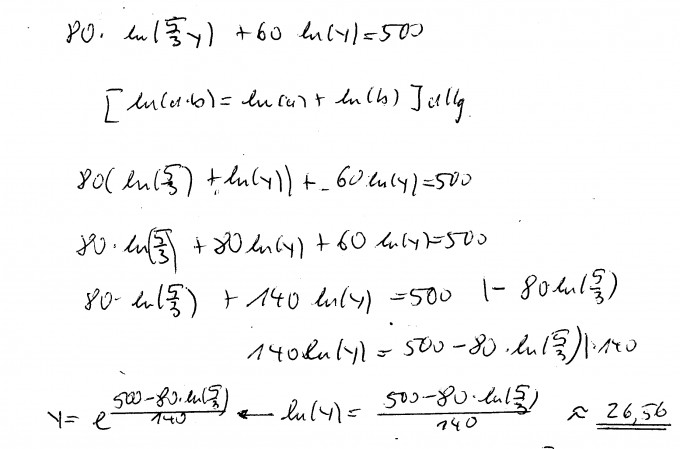 80 · ln(5/3 y) + 60 ln(y) = 500
[ln(a·b) = ln(a) + ln(b)] allg.
80(ln(5/3) + ln(y)) + 60 ln(y) = 500
80 · ln(5/3) + 80 ln(y) + 60 ln(y) = 500
80 · ln(5/3) + 140 ln(y) = 500 |- 80 ln(5/3)
140 ln(y) = 500 - 80 · ln(5/3) |: 140
y = e^((500-80·ln(5/3))/140) ← ln(y) = (500-80·ln(5/3))/140 ≈ 26,56